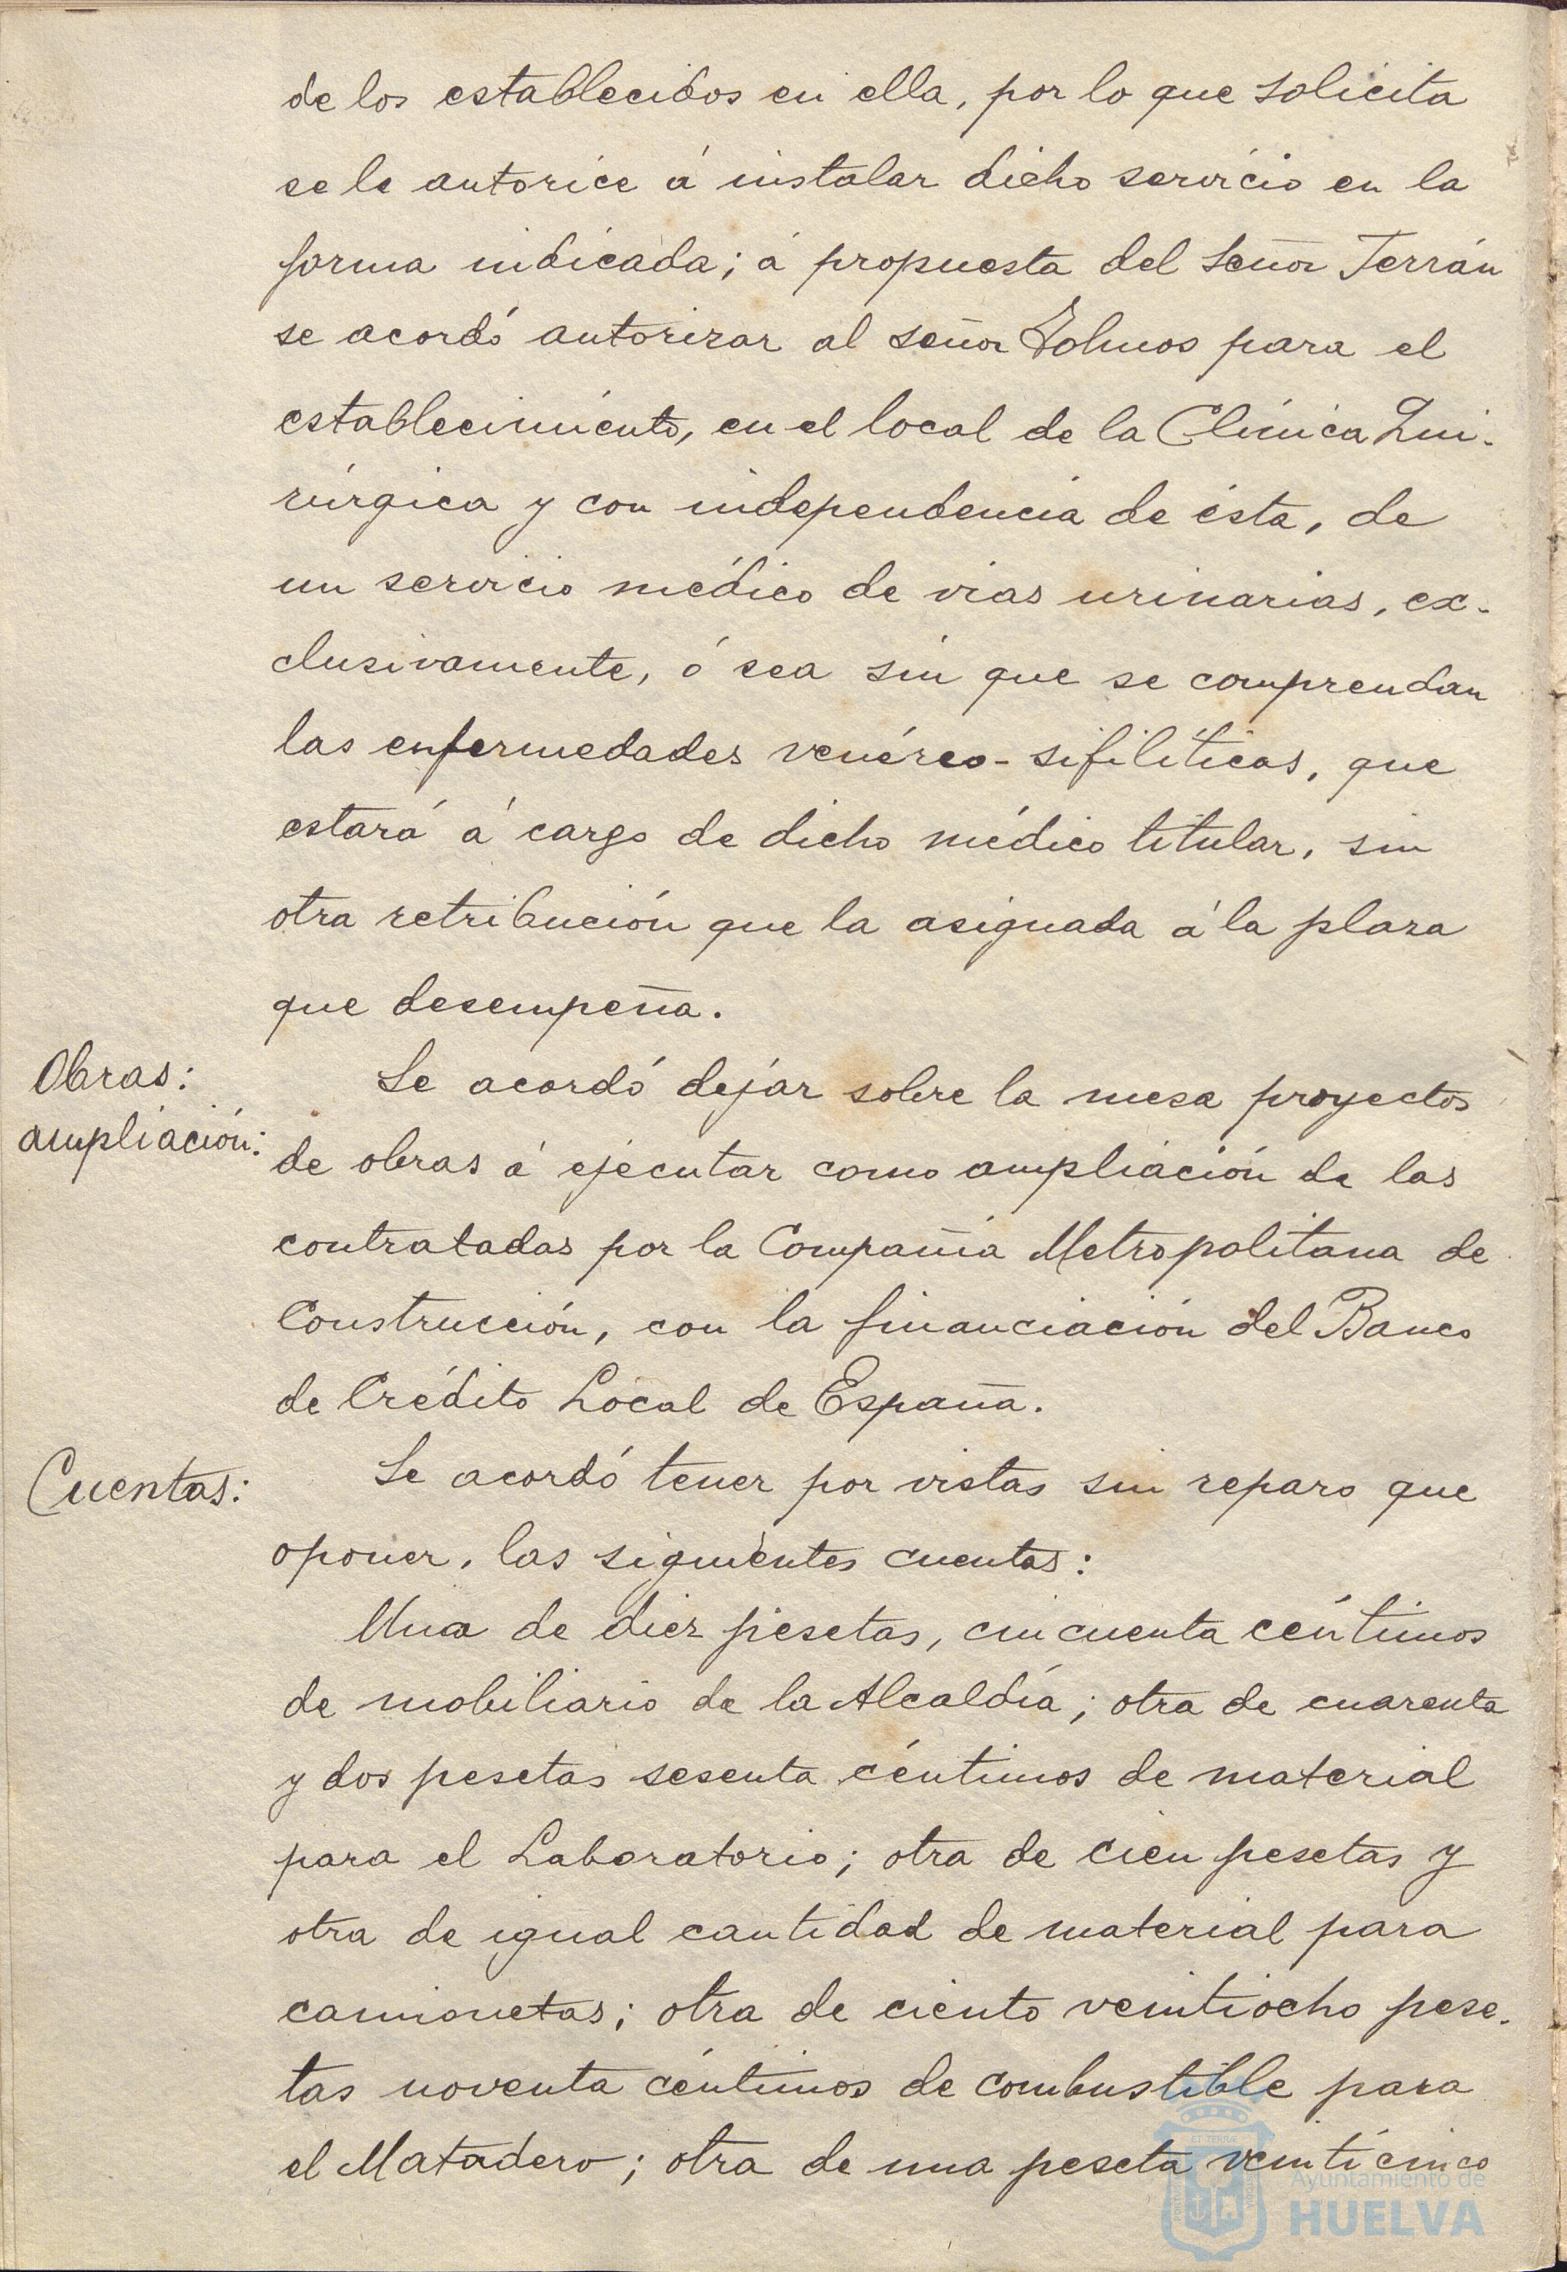 de los establecidos en ella, por lo que solicita
se le autorice á instalar dicho servicio en la
forma indicada; á propuesta del Señor Terrán
se acordó autorizar al señor para el
establecimiento, en el local de la Clínica Qui-
rúrgica y con independencia de ésta, de
un servicio médico de vias urinarias, ex-
clusivamente, ó sea sin que se comprendan
las enfermedades venéreo-sifilíticas, que
estará á cargo de dicho médico titular, sin
otra retribución que la asignada á la plaza
que desempeña.
Obras:
ampliación:
Se acordó dejar sobre la mesa proyectos
de obras á ejecutar como ampliación de las
contratadas por la Compañía Metropolitana de
Construcción, con la financiación del Banco
de Crédito Local de España.
Cuentas:
Se acordó tener por vistas sin reparo que
oponer, las siguientes cuentas:
Una de diez pesetas, cincuenta céntimos
de mobiliario de la Alcaldía; otra de cuarenta
y dos pesetas sesenta céntimos de material
para el Laboratorio; otra de cien pesetas y
otra de igual cantidad de material para
camionetas; otra de ciento veintiocho pese-
tas noventa céntimos de combustible para
el Matadero; otra de una peseta veinticinco
Ayuntamiento de
HUELVA